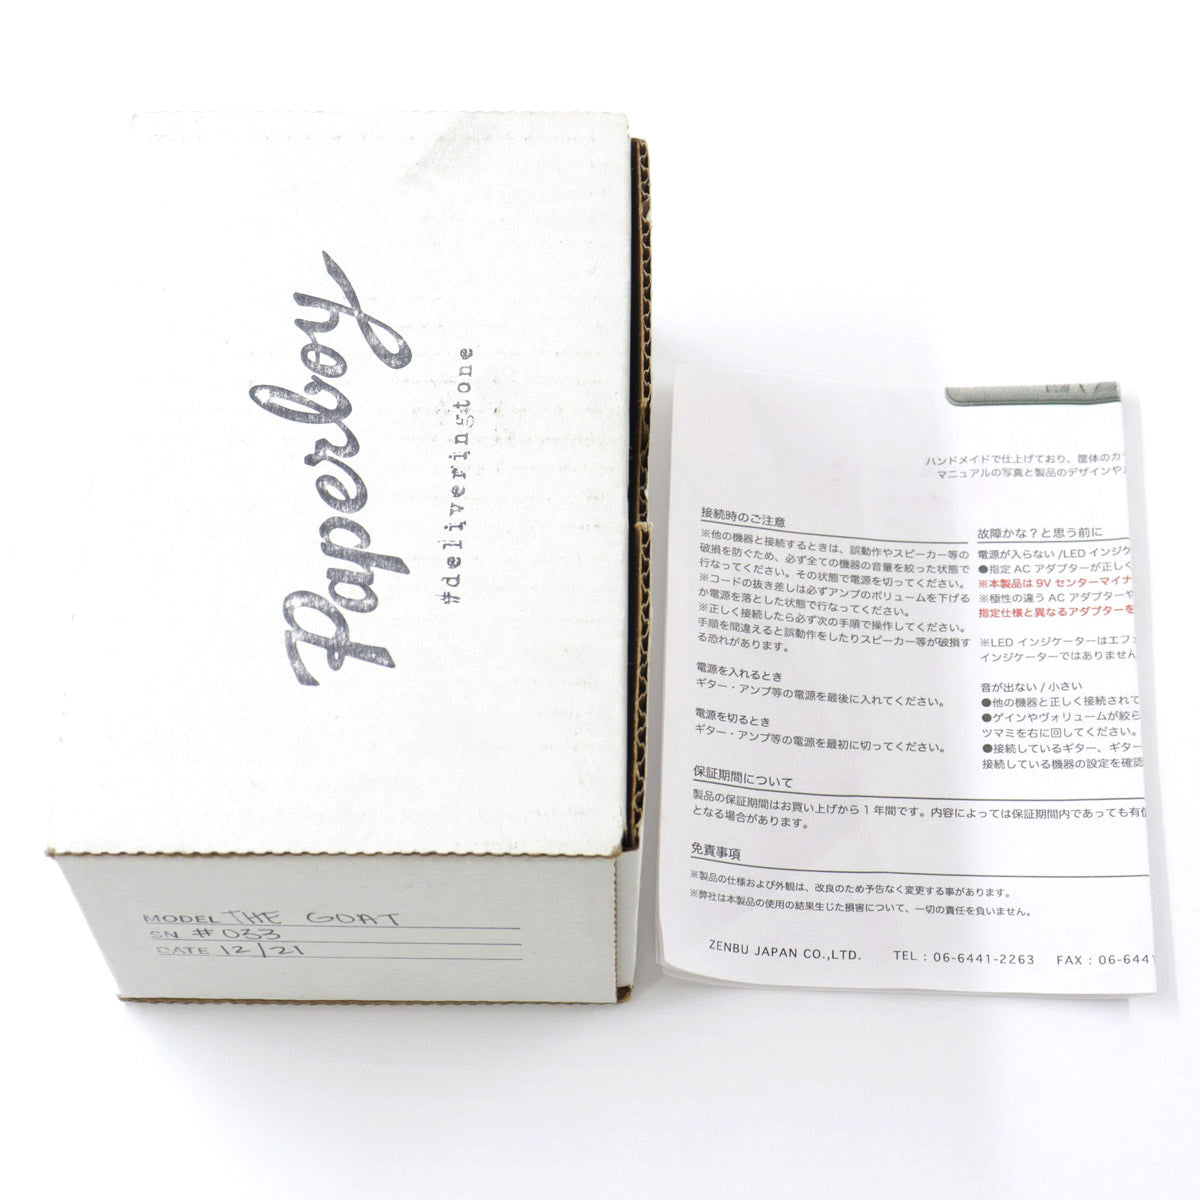 Paperboy
#deliveringtone
MODEL THE GOAT
SN # 033
DATE 12/21
ハンドメイドで仕上げており、筐体のカ
マニュアルの写真と製品のデザインや
接続時のご注意
※他の機器と接続するときは、誤動作やスピーカー等の
破損を防ぐため、必ず全ての機器の音量を絞った状態で
行なってください。その状態で電源を切ってください。
※コードの抜き差しは必ずアンプのボリュームを下げる
か電源を落とした状態で行なってください。
※正しく接続したら必ず次の手順で操作してください。
手順を間違えると誤動作をしたりスピーカー等が破損す
る恐れがあります。
電源を入れるとき
ギター・アンプ等の電源を最後に入れてください。
電源を切るとき
ギター・アンプ等の電源を最初に切ってください。
故障かな？と思う前に
電源が入らない /LED インジケ
●指定 AC アダプターが正しく
※本製品は 9V センターマイナ
※極性の違う AC アダプターや
指定仕様と異なるアダプターを
※LED インジケーターはエフェ
インジケーターではありません
音が出ない / 小さい
●他の機器と正しく接続されて
●ゲインやヴォリュームが絞ら
ツマミを右に回してください。
●接続しているギター、ギター
接続している機器の設定を確認
保証期間について
製品の保証期間はお買い上げから 1 年間です。内容によっては保証期間内であっても有償
となる場合があります。
免責事項
※製品の仕様および外観は、改良のため予告なく変更する事があります。
※弊社は本製品の使用の結果生じた損害について、一切の責任を負いません。
ZENBU JAPAN CO.,LTD. TEL : 06-6441-2263 FAX : 06-6441